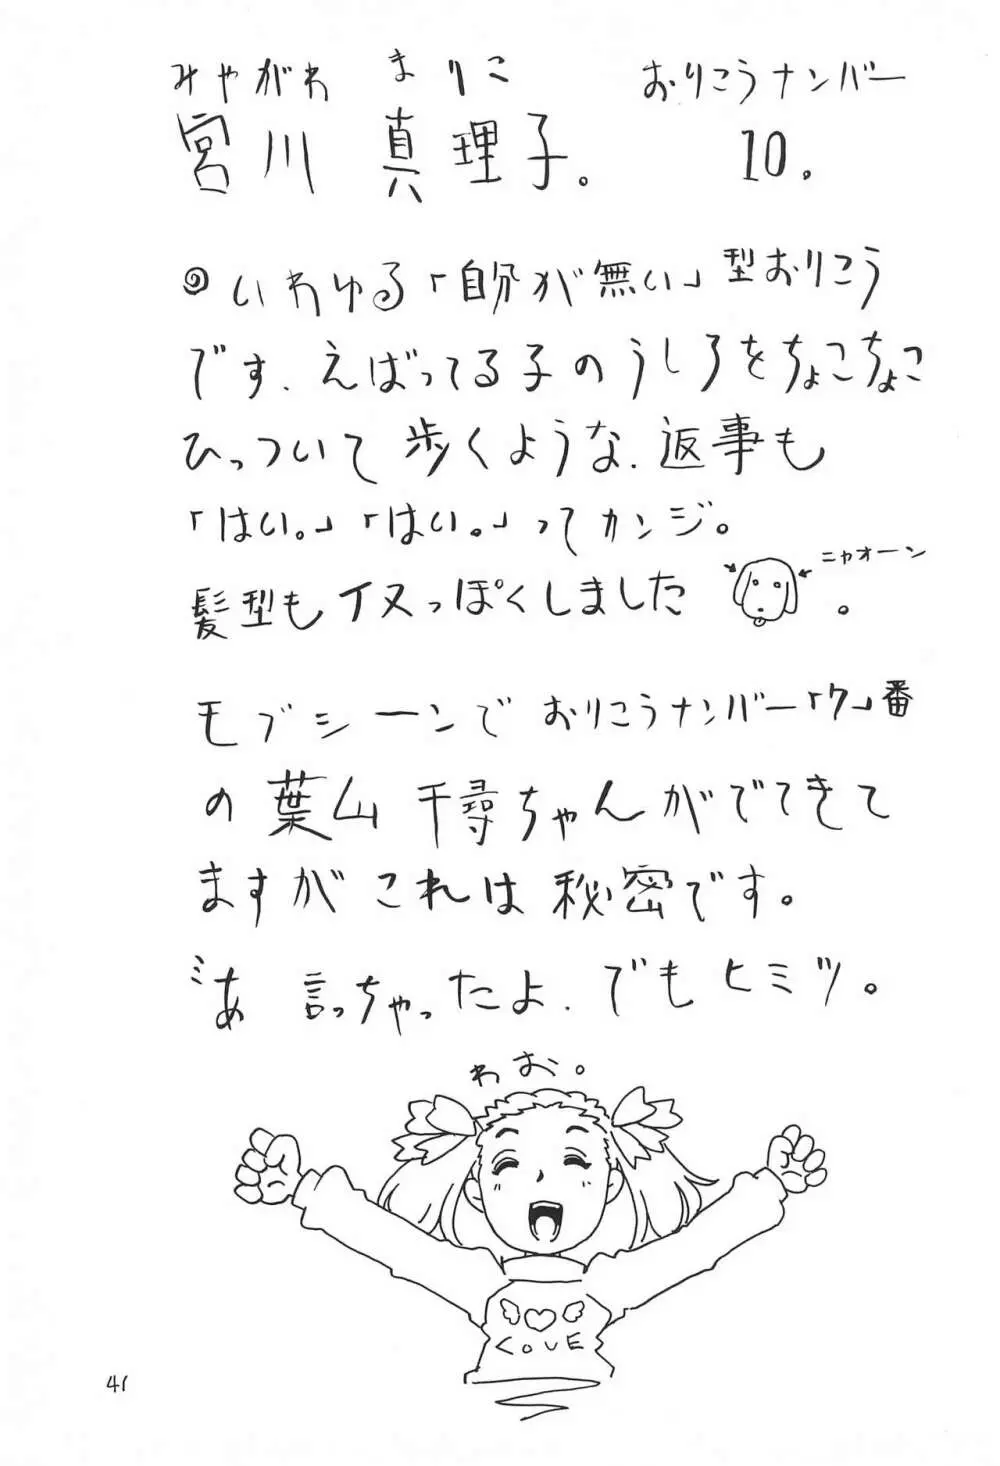 みやがわ まりこ おりこうナンバー
宮川 真理子。 10.
いわゆる「自分が無い」型おりこう
です、えばってる子のうしろをちょこちょこ
ひっついて歩くような、返事も
「はい。」「はい。」ってカンジ。
ニャオーン
髪型もイヌっぽくしました 。
モブシーンでおりこうナンバー「7」番
の葉山千尋ちゃんがでてきて
ますがこれは秘密です。
あ 言っちゃったよ、でもヒミツ。
わお。
LOVE
41